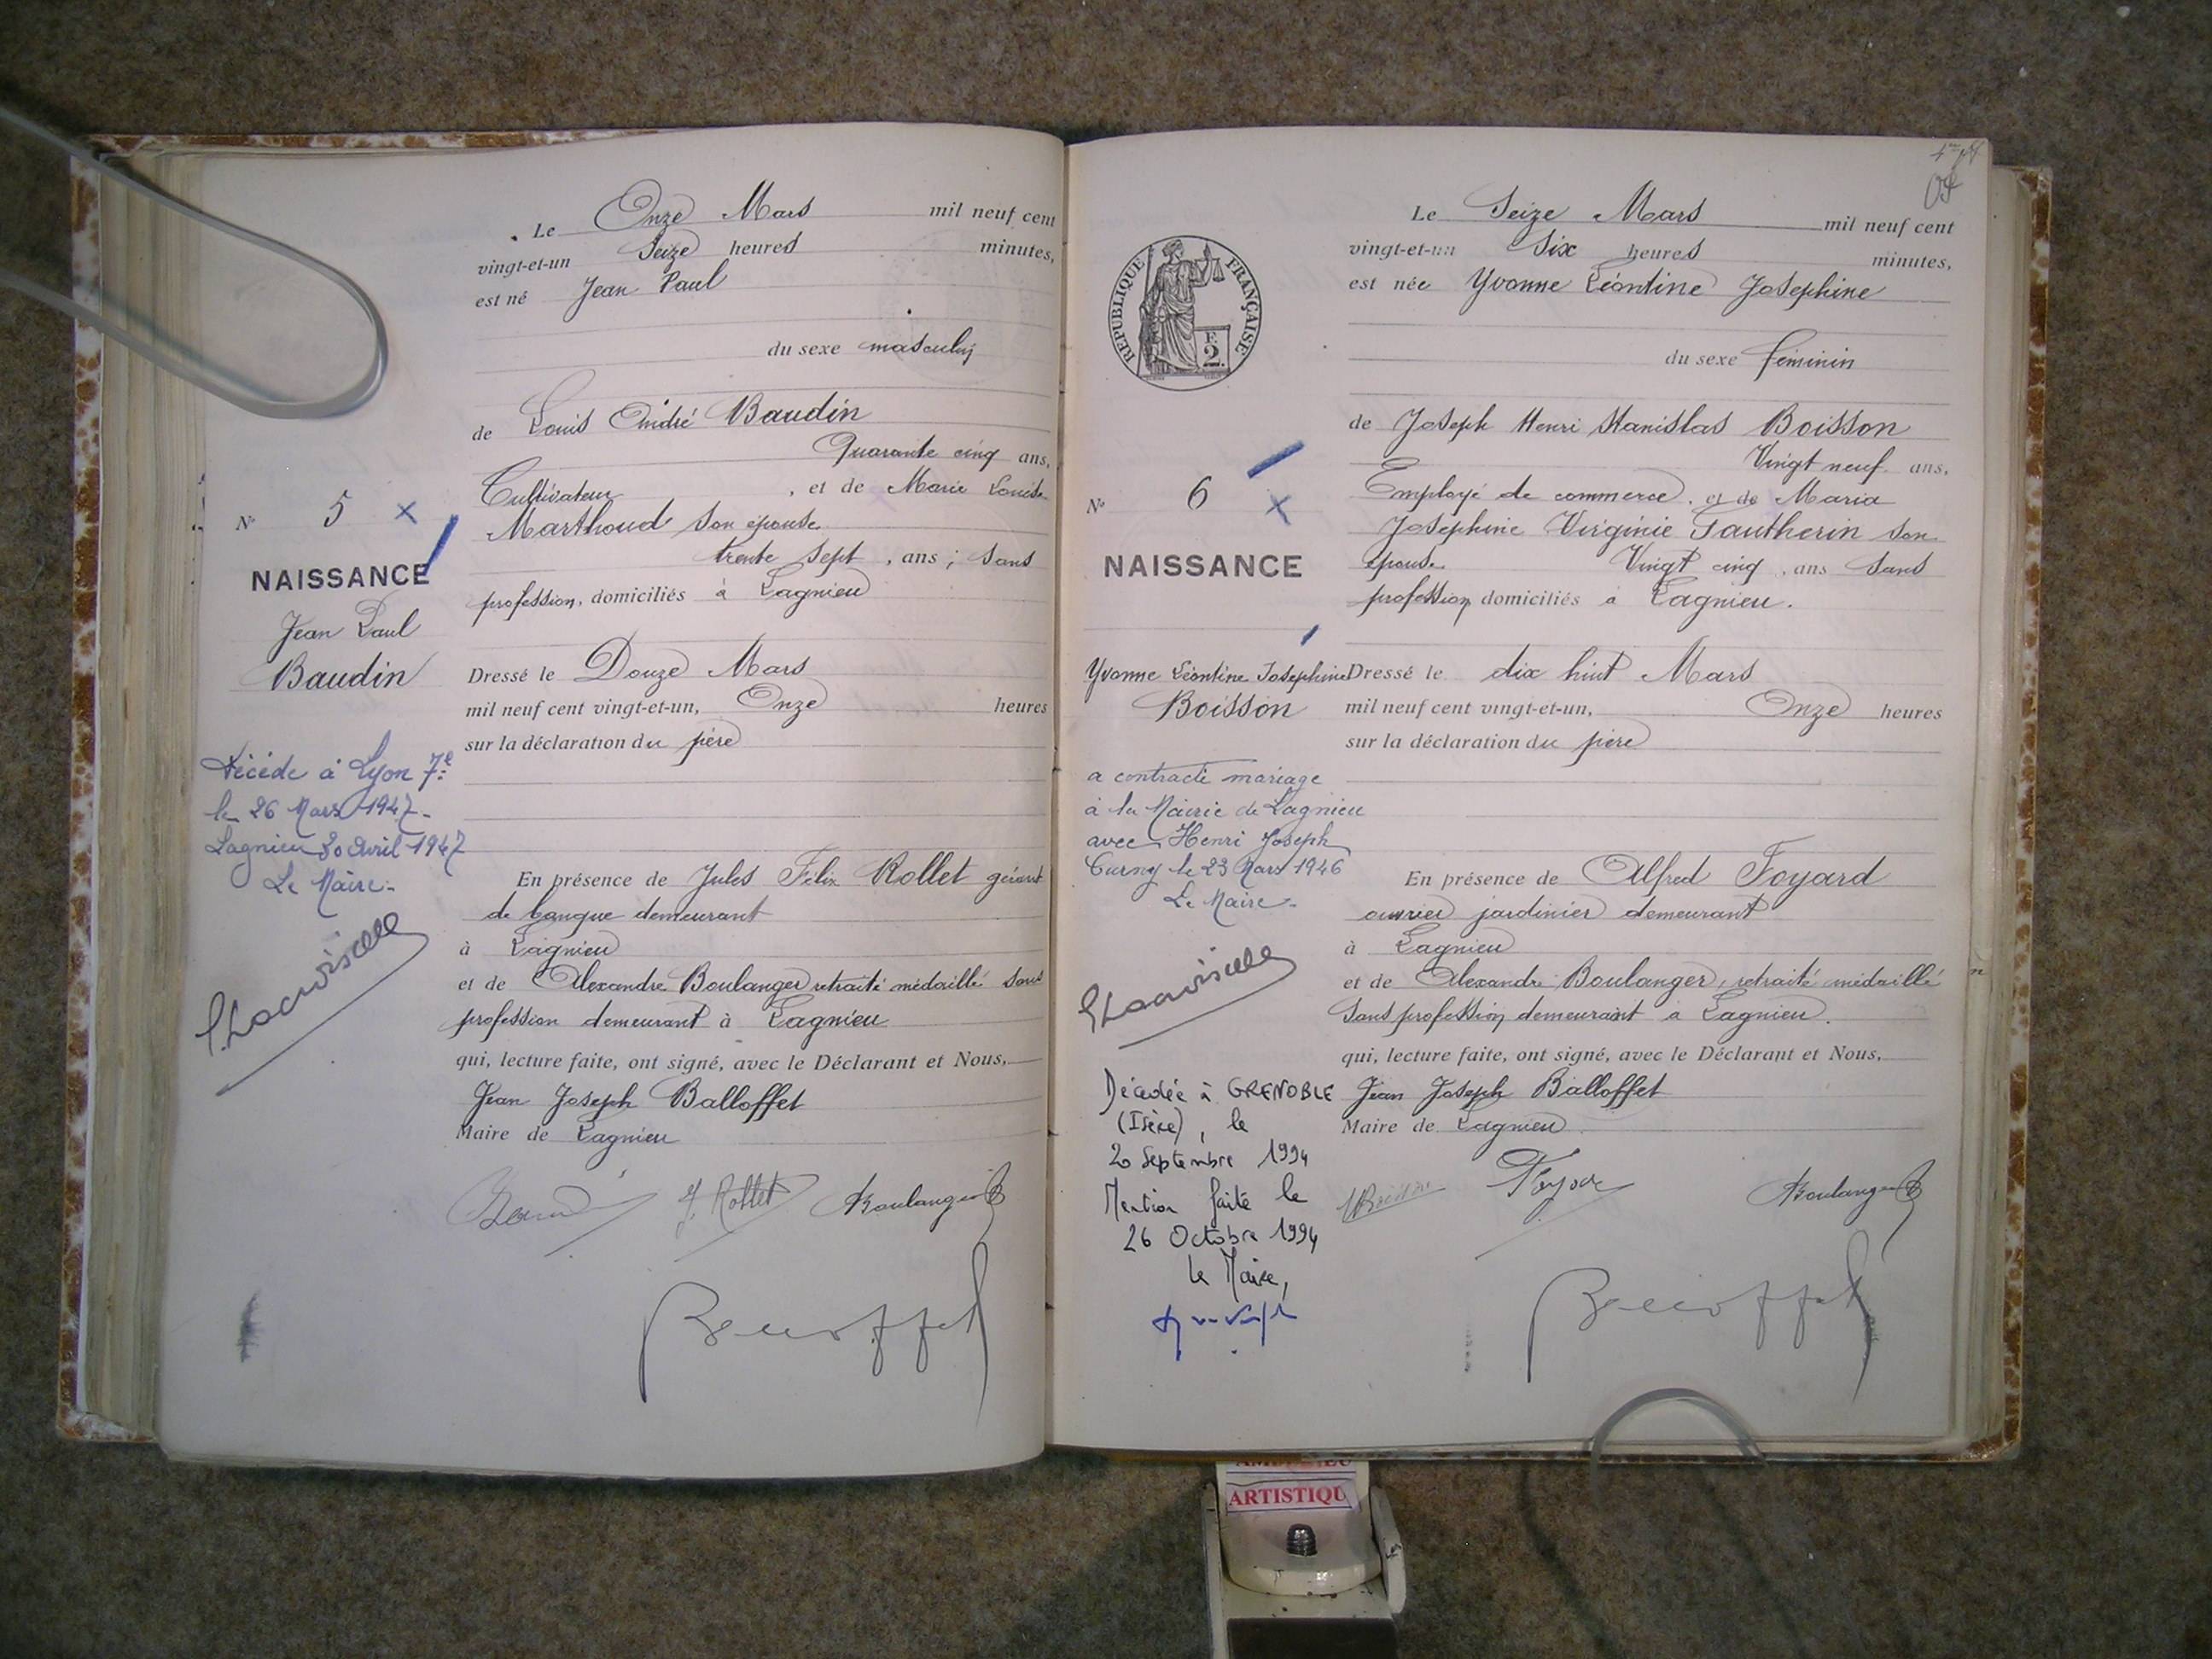 Le Onze Mars mil neuf cent
vingt-et-un Seize heures minutes,
est né Jean Paul
du sexe masculin
de Louis André Baudin
Quarante cinq ans,
Cultivateur, et de Marie Louise
Marthoud son épouse
trente sept, ans ; sans
profession, domiciliés à Lagnieu
N° 5 x
NAISSANCE
Jean Paul
Baudin
Dressé le Douze Mars
mil neuf cent vingt-et-un, Onze heures
sur la déclaration du père
Décédé à Lyon 7e
le 26 Mars 1947-
Lagnieu 30 Avril 1947
Le Maire-
En présence de Jules Félix Rollet gérant
de banque demeurant
à Lagnieu
et de Alexandre Boulanger retraité médaillé sans
profession demeurant à Lagnieu
qui, lecture faite, ont signé, avec le Déclarant et Nous,
Jean Joseph Balloffet
Maire de Lagnieu
J. Rollet Boulanger
Le Seize Mars mil neuf cent
vingt-et-un Six heures minutes,
est née Yvonne Léontine Josephine
du sexe féminin
REPUBLIQUE FRANÇAISE
F.
2.
de Joseph Henri Stanislas Boisson
Vingt neuf ans,
Employé de commerce, et de Maria
Josephine Virginie Tautherin son
épouse Vingt cinq, ans sans
profession domiciliés à Lagnieu.
N° 6 x
NAISSANCE
Yvonne Léontine Josephine
Boisson
Dressé le dix huit Mars
mil neuf cent vingt-et-un, Onze heures
sur la déclaration du père
a contracté mariage
à la Mairie de Lagnieu
avec Henri Joseph
le 23 Mars 1946
Le Maire-
En présence de Alfred Foyard
ouvrier jardinier demeurant
à Lagnieu
et de Alexandre Boulanger, retraité médaillé
sans profession demeurant à Lagnieu.
qui, lecture faite, ont signé, avec le Déclarant et Nous,
Jean Joseph Balloffet
Maire de Lagnieu
Décédée à GRENOBLE
(Isère), le
20 Septembre 1994
Mention faite le
26 Octobre 1994
Le Maire,
Boulanger
ARTISTIQU